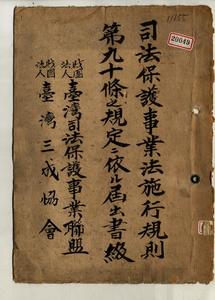 11155
20049
司法保護事業法施行規則
第九十條之規定ニ依ル屆出書級
財團法人 臺灣司法保護事業聯盟
財團法人 臺灣三成協會